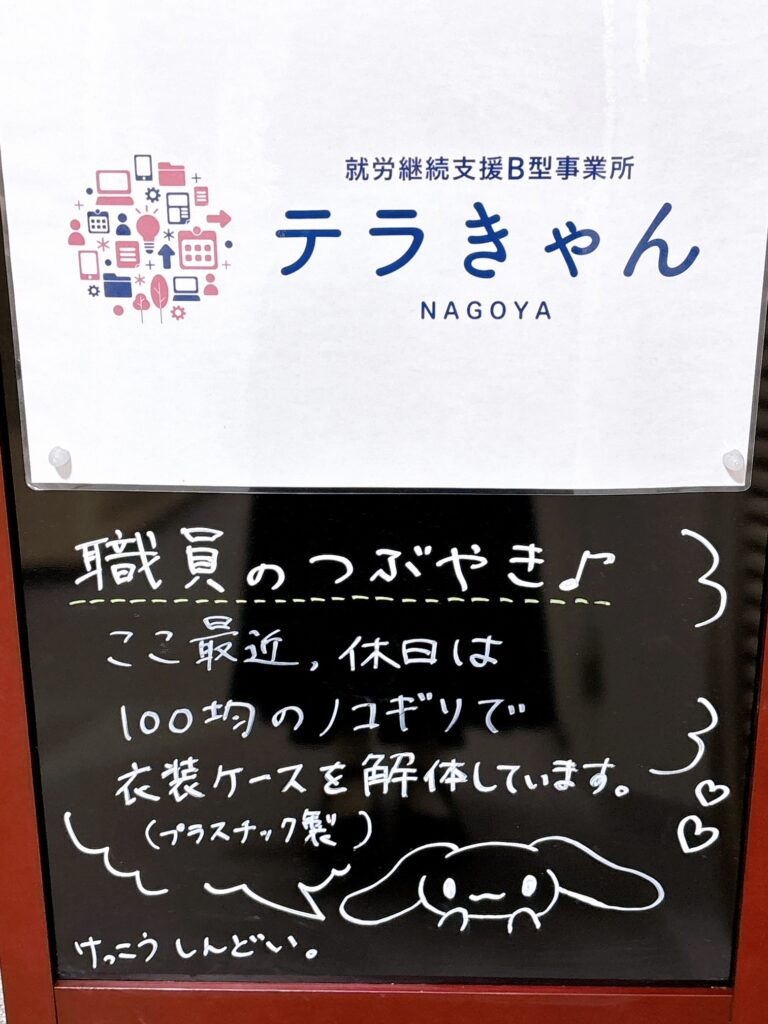 就労継続支援B型事業所
テラきゃん
NAGOYA
職員のつぶやき♪
ここ最近,休日は
100均のノコギリで
衣装ケースを解体しています。
(プラスチック製)
けっこうしんどい。